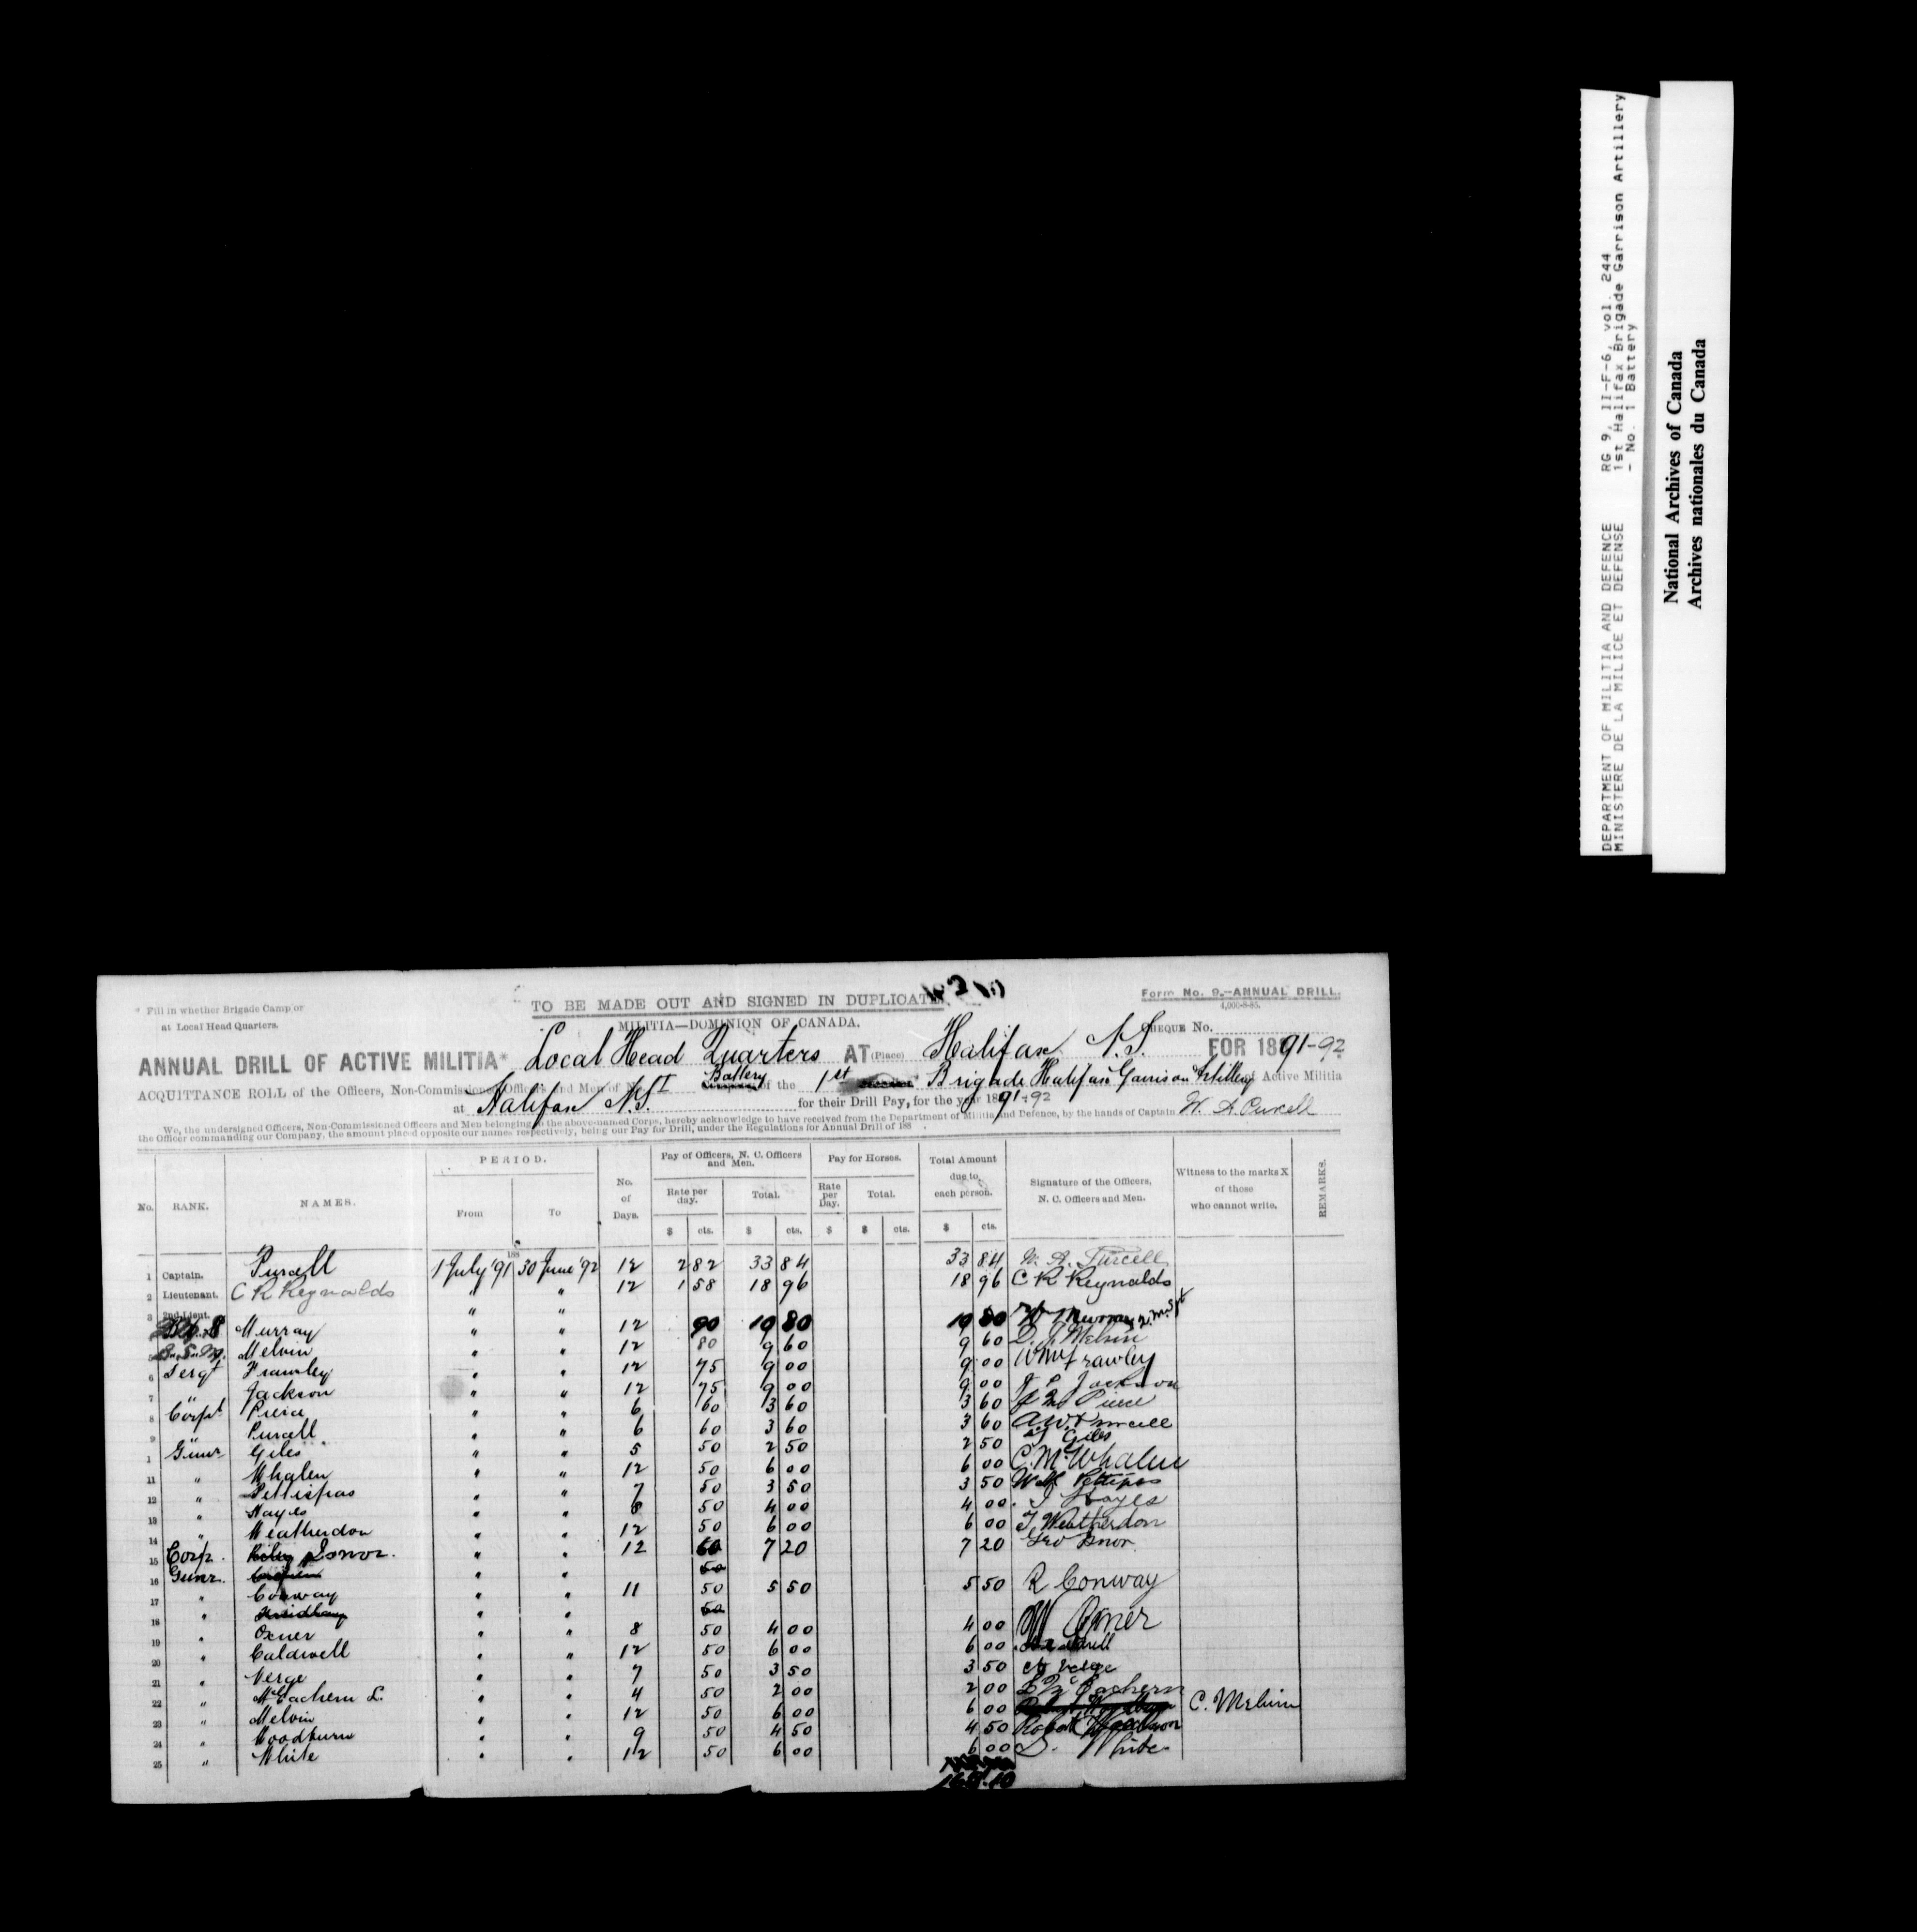 DEPARTMENT OF MILITIA AND DEFENCE RG 9, II-F-6, vol. 244
MINISTERE DE LA MILICE ET DEFENSE 1st Halifax Brigade Garrison Artillery
- No. 1 Battery
National Archives of Canada
Archives nationales du Canada
* Fill in whether Brigade Camp or
at Local Head Quarters.
TO BE MADE OUT AND SIGNED IN DUPLICATE.
Form No. 9.—ANNUAL DRILL.
4,000-8-85.
MILITIA—DOMINION OF CANADA.
CHEQUE No.
ANNUAL DRILL OF ACTIVE MILITIA* Local Head Quarters AT (Place) Halifax N.S. FOR 1891-92
ACQUITTANCE ROLL of the Officers, Non-Commissioned Officers and Men of No. I Battery of the 1st Brigade Halifax Garrison Artillery of Active Militia
at Halifax N.S. for their Drill Pay, for the year 1891-92
We, the undersigned Officers, Non-Commissioned Officers and Men belonging to the above-named Corps, hereby acknowledge to have received from the Department of Militia and Defence, by the hands of Captain W. A. Purcell
the Officer commanding our Company, the amount placed opposite our names respectively, being our Pay for Drill, under the Regulations for Annual Drill of 188 .
No. RANK. NAMES. PERIOD. From To No. of Days. Pay of Officers, N. C. Officers and Men. Rate per day. $ cts. Total. $ cts. Pay for Horses. Rate per Day. $ Total. $ cts. Total Amount due to each person. $ cts. Signature of the Officers, N. C. Officers and Men. Witness to the marks X of those who cannot write. REMARKS.
188
1 Captain. Purcell 1 July '91 30 June '92 12 2 82 33 84 33 84 W. A. Purcell
2 Lieutenant. C R Reynalds " " 12 1 58 18 96 18 96 C R Reynalds
3 2nd Lieut. " "
Murray " " 12 90 10 80 10 80 Murray
5 B.S.M. Melvin " " 12 80 9 60 9 60 D. J. Melvin
6 Sergt Frawley " " 12 75 9 00 9 00 Wm Frawley
7 " Jackson " " 12 75 9 00 9 00 J P Jackson
8 Corpl Pierce " " 6 60 3 60 3 60 Pierce
9 " Purcell " " 6 60 3 60 3 60 A W Purcell
1 Gunr Giles " " 5 50 2 50 2 50 Giles
11 " Whalen " " 12 50 6 00 6 00 C. M. Whalen
12 " Pettispas " " 7 50 3 50 3 50 Pettipas
13 " Hayes " " 8 50 4 00 4 00 J Hayes
14 " Weatherdon " " 12 50 6 00 6 00 T. Weatherdon
15 Corp. Isnor. " " 12 60 7 20 7 20 Geo Isnor.
16 Gunr. " " 50
17 " Conway " " 11 50 5 50 5 50 R Conway
18 " " " 50
19 " Oxner " " 8 50 4 00 4 00 W Oxner
20 " Caldwell " " 12 50 6 00 6 00
21 " Verge " " 7 50 3 50 3 50 Verge
22 " McEachern L. " " 4 50 2 00 2 00 L McEachern
23 " Melvin " " 12 50 6 00 6 00 C. Melvin
24 " Woodburn " " 9 50 4 50 4 50 Robert Woodburn
25 " White " " 12 50 6 00 6 00 S. White